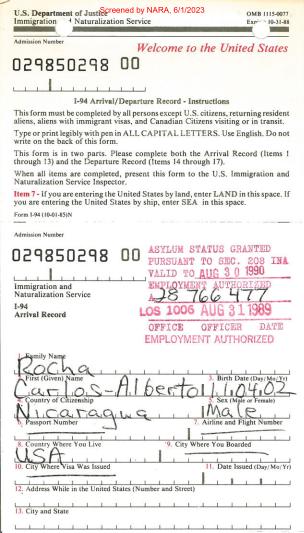 Screened by NARA, 6/1/2023
U.S. Department of Justice
OMB 1115-0077
Immigration and Naturalization Service
Expires 10-31-88
Admission Number
Welcome to the United States
029850298 00
I-94 Arrival/Departure Record - Instructions
This form must be completed by all persons except U.S. citizens, returning resident
aliens, aliens with immigrant visas, and Canadian Citizens visiting or in transit.
Type or print legibly with pen in ALL CAPITAL LETTERS. Use English. Do not
write on the back of this form.
This form is in two parts. Please complete both the Arrival Record (Items 1
through 13) and the Departure Record (Items 14 through 17).
When all items are completed, present this form to the U.S. Immigration and
Naturalization Service Inspector.
Item 7 - If you are entering the United States by land, enter LAND in this space. If
you are entering the United States by ship, enter SEA in this space.
Form I-94 (10-01-85)N
Admission Number
029850298 00
ASYLUM STATUS GRANTED
PURSUANT TO SEC. 208 INA
VALID TO AUG 30 1990
EMPLOYMENT AUTHORIZED
A28 766 477
Immigration and
Naturalization Service
I-94
Arrival Record
LOS 1006 AUG 31 1989
OFFICE OFFICER DATE
EMPLOYMENT AUTHORIZED
1. Family Name
Rocha
2. First (Given) Name
3. Birth Date (Day/Mo/Yr)
Carlos-Alberto
4. Country of Citizenship
5. Sex (Male or Female)
Nicaragua
Male
6. Passport Number
7. Airline and Flight Number
8. Country Where You Live
9. City Where You Boarded
USA
10. City Where Visa Was Issued
11. Date Issued (Day/Mo/Yr)
12. Address While in the United States (Number and Street)
13. City and State